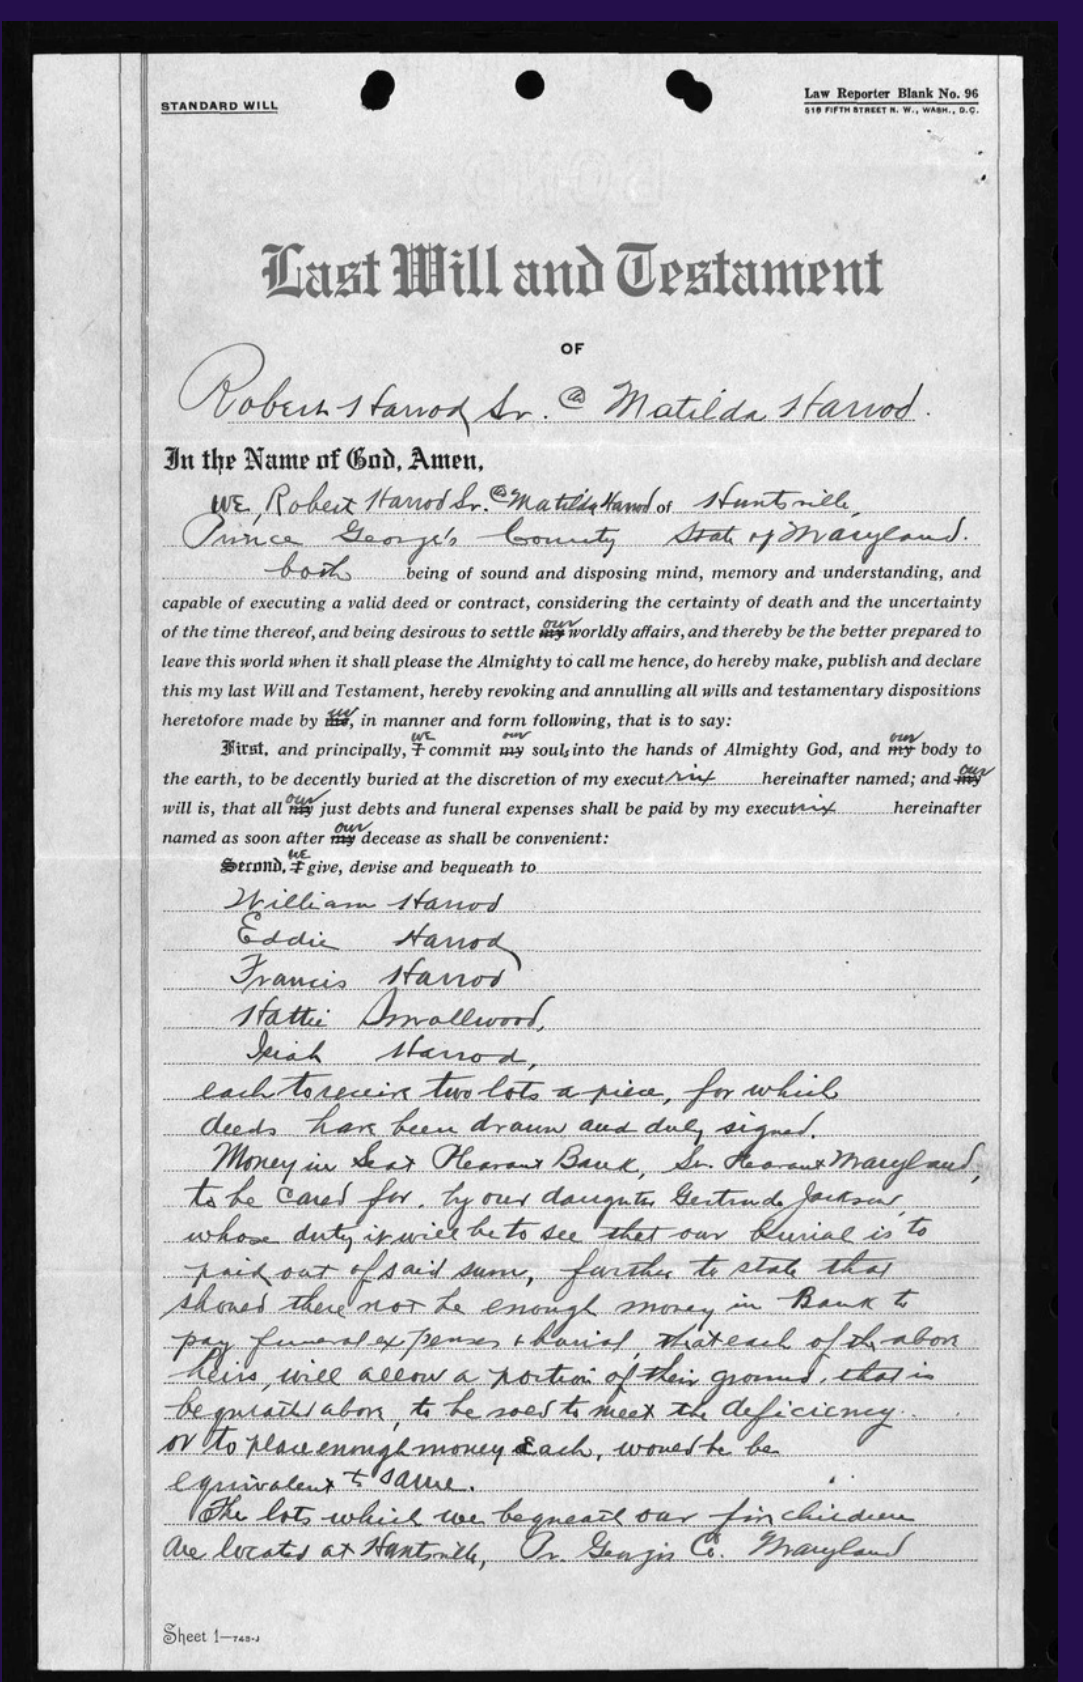 STANDARD WILL
Law Reporter Blank No. 96
518 FIFTH STREET N. W., WASH., D.C.
Last Will and Testament
OF
Robert Harrod Sr. & Matilda Harrod.
In the Name of God, Amen,
WE, Robert Harrod Sr. & Matilda Harrod of Huntsville,
Prince George's County State of Maryland.
both being of sound and disposing mind, memory and understanding, and
capable of executing a valid deed or contract, considering the certainty of death and the uncertainty
of the time thereof, and being desirous to settle my our worldly affairs, and thereby be the better prepared to
leave this world when it shall please the Almighty to call me hence, do hereby make, publish and declare
this my last Will and Testament, hereby revoking and annulling all wills and testamentary dispositions
heretofore made by me us, in manner and form following, that is to say:
First, and principally, I WE commit my our souls into the hands of Almighty God, and my our body to
the earth, to be decently buried at the discretion of my executrix hereinafter named; and my our
will is, that all my our just debts and funeral expenses shall be paid by my executrix hereinafter
named as soon after my our decease as shall be convenient:
Second, I WE give, devise and bequeath to
William Harrod
Eddie Harrod
Francis Harrod
Hattie Smallwood,
Isiah Harrod,
each to receive two lots a piece, for which
deeds have been drawn and duly signed.
Money in Seat Pleasant Bank, St. Pleasant Maryland,
to be cared for. by our daughter Gertrude Jackson,
whose duty it will be to see that our burial is to
paid out of said sum, further to state that
should there not be enough money in Bank to
pay funeral expenses & burial, that each of the above
heirs, will allow a portion of their ground, that is
bequeathed above, to be sold to meet the deficiency.
or to place enough money Each, would be be
equivalent to same.
The lots which we bequeath our five children
are located at Huntsville, Pr. Georges Co. Maryland
Sheet 1—745-J